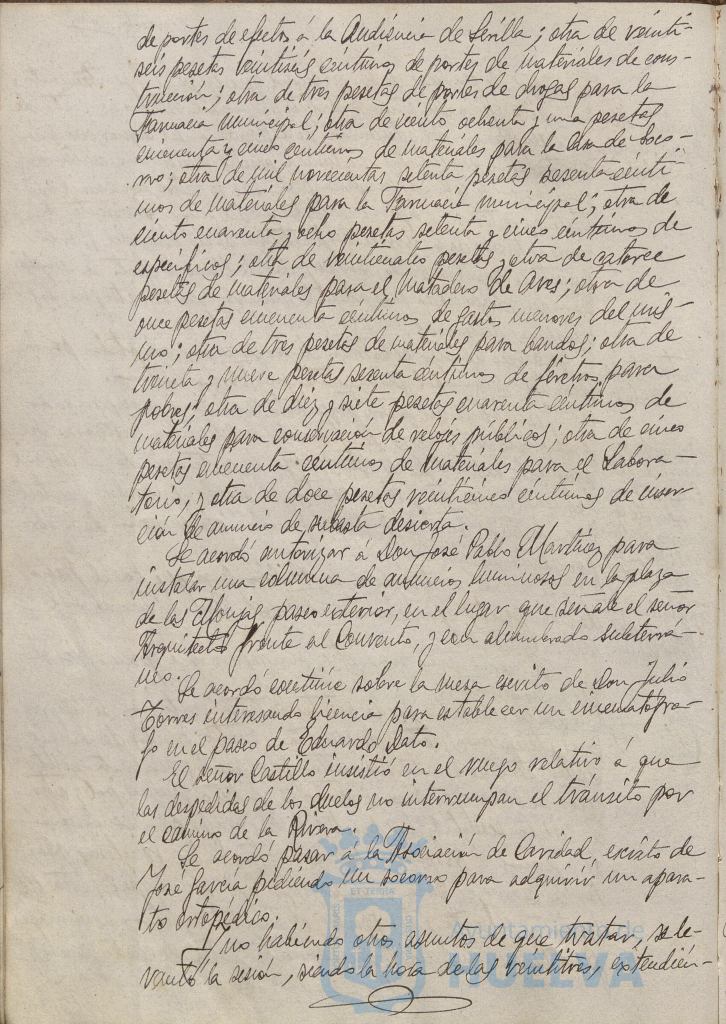 de portes de efectos á la Audiencia de Sevilla; otra de veinti-
seis pesetas veintiseis céntimos de portes de materiales de cons-
trucción; otra de tres pesetas de portes de drogas para la
Farmacia municipal; otra de ciento ochenta y una pesetas
cincuenta y cinco céntimos de materiales para la Casa de Soco-
rro; otra de mil novecientas setenta pesetas sesenta cénti-
mos de materiales para la Farmacia municipal; otra de
ciento cuarenta y ocho pesetas setenta y cinco céntimos de
específicos; otra de veinticuatro pesetas y otra de catorce
pesetas de materiales para el Matadero de Aves; otra de
once pesetas cincuenta céntimos de gastos menores del mis-
mo; otra de tres pesetas de materiales para bandos; otra de
treinta y nueve pesetas sesenta céntimos de féretros para
pobres; otra de diez y siete pesetas cuarenta céntimos de
materiales para conservación de relojes públicos; otra de cinco
pesetas cincuenta céntimos de materiales para el Labora-
torio, y otra de doce pesetas veinticinco céntimos de inser-
ción de anuncio de subasta desierta.
Se acordó autorizar á Don José Pablo Martínez para
instalar una columna de anuncios luminosos en la plaza
de las Monjas, paseo exterior, en el lugar que señale el señor
Arquitecto frente al Convento, y con alumbrado subterrá-
neo.
Se acordó continúe sobre la mesa escrito de Don Julio
Torres interesando licencia para establecer un cinematógra-
fo en el paseo de Eduardo Dato.
El señor Castillo insistió en el ruego relativo á que
las despedidas de los duelos no interrumpan el tránsito por
el camino de la Rivera.
Se acordó pasar á la Asociación de Caridad, escrito de
José García pidiendo un socorro para adquirir un apara-
to ortopédico.
Y no habiendo otros asuntos de que tratar, se le-
vantó la sesión, siendo la hora de las veintitres, extendién-
Ayuntamiento de
HUELVA